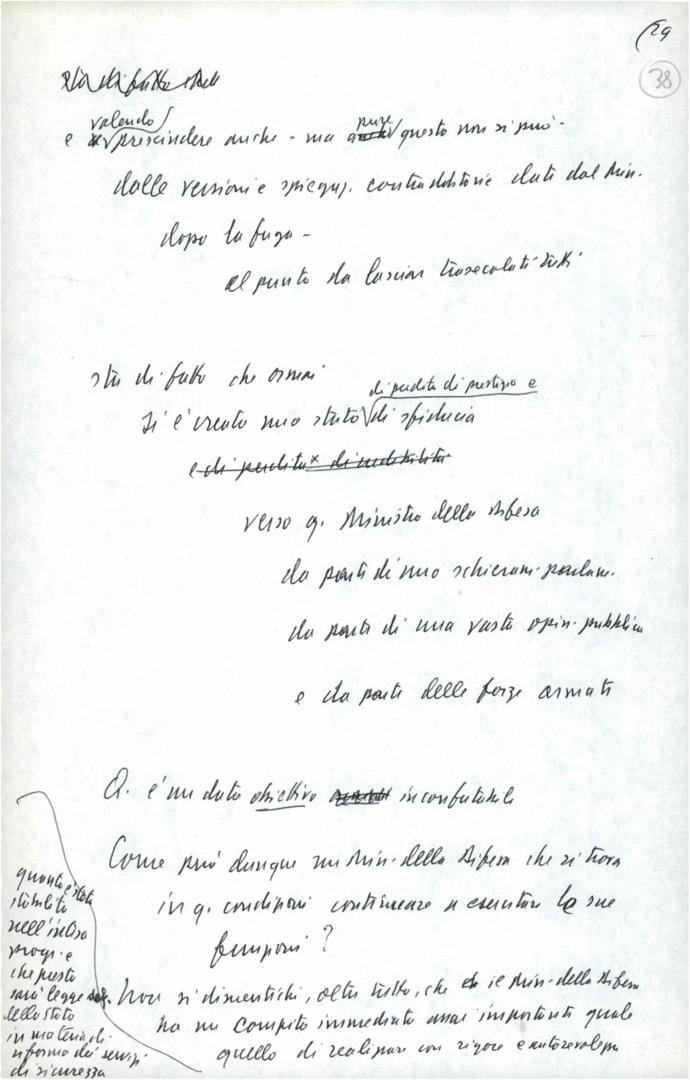 29
38
sta di fatto che
valendo
e prescindere anche - ma pure questo non si può -
dalle versioni e spiegaz. contraddittorie date dal Min.
dopo la fuga -
al punto da lasciar trasecolati tutti
sta di fatto che ormai
di perdita di prestigio e
si è creato uno stato di sfiducia
e di perdita di credibilità
verso q. Ministro della Difesa
da parte di uno schieram. parlam.
da parte di una vasta opin. pubblica
e da parte delle forze armate
Q. è un dato obiettivo inconfutabile
Come può dunque un Min. della Difesa che si trova
in q. condizioni continuare a esercitare le sue
funzioni?
Non si dimentichi, oltre tutto, che il Min. della Difesa
ha un compito immediato assai importante quale
quello di realizzare con rigore e autorevolezza
quanto è stato
stabilito
nell'intesa
progr. e
che presto
sarà legge
dello Stato
in materia di
riforma dei servizi
di sicurezza